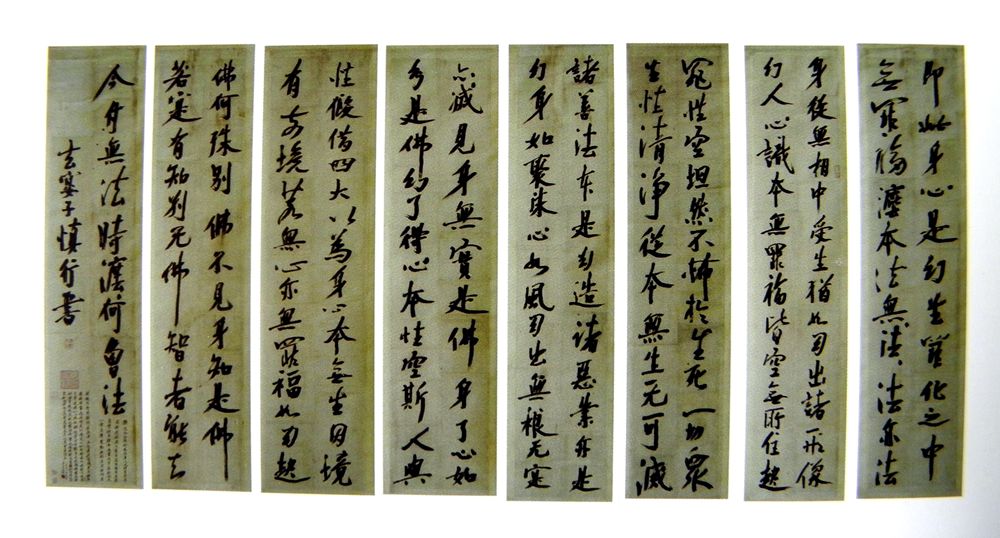 即此身心是幻生幻化之中
無罪福灋本法無法、法亦法
身從無相中受生猶如幻出諸形像
幻人心識本無罪福皆空無所住起
罪性空坦然不怖於生死一切眾
生性清淨從本無生无可滅
諸善法本是幻造諸惡業亦是
幻身如聚沫心如風幻出無根无實
亦滅見身無實是佛身了心如
幻是佛幻了得心本性空斯人與
性假借四大以為身心本無生因境
有前境若無心亦無罪福如幻起
佛何殊別佛不見身知是佛
若實有知別无佛智者能知
今付無法時灋何曾法
子慎行書